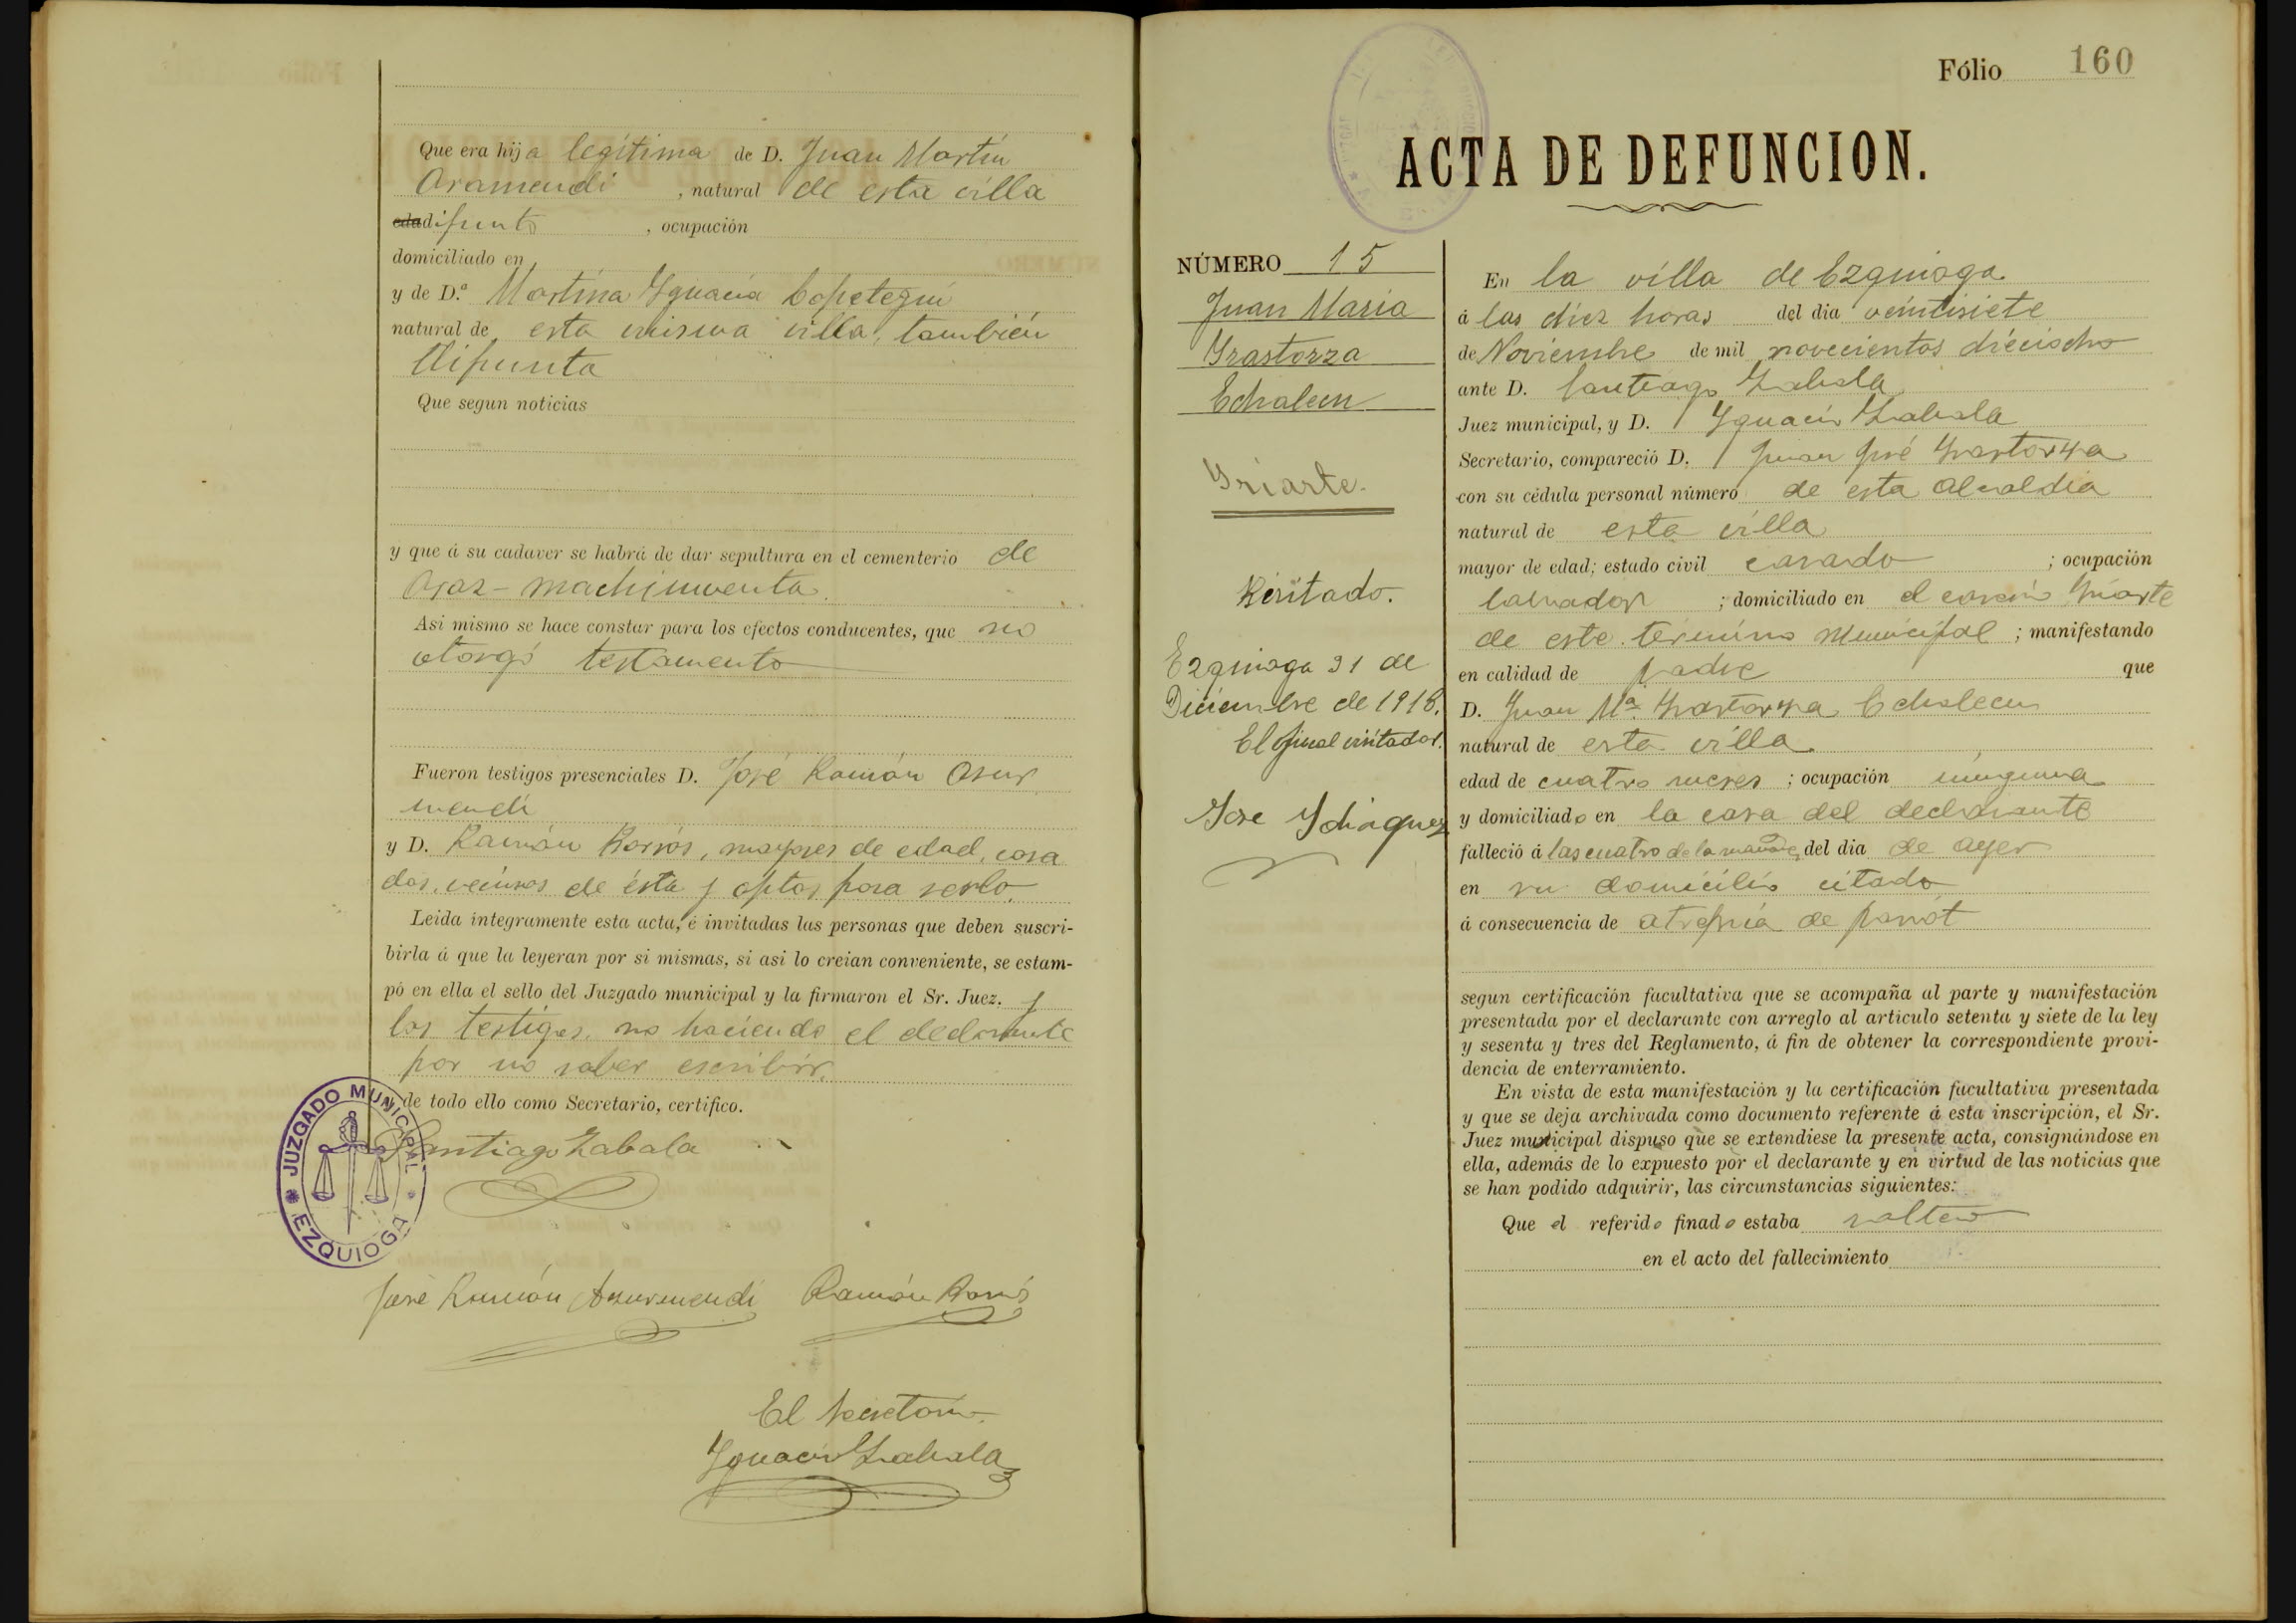 Que era hija legítima de D. Juan Martín
Aramendi , natural de esta villa
edad difunto , ocupación
domiciliado en
y de D.ª Martina Ygnacia Copetegui
natural de esta misma villa, también
difunta
Que segun noticias
y que á su cadaver se habrá de dar sepultura en el cementerio de
Araz-machinventa.
Asi mismo se hace constar para los efectos conducentes, que no
otorgó testamento
Fueron testigos presenciales D. José Ramón Asur
mendi
y D. Ramón Barrós, mayores de edad, casa
dos, vecinos de ésta y aptos para serlo.
Leida íntegramente esta acta, é invitadas las personas que deben suscri-
birla á que la leyeran por si mismas, si asi lo creian conveniente, se estam-
pó en ella el sello del Juzgado municipal y la firmaron el Sr. Juez. y
los testigos, no haciendo el declarante
por no saber escribir.
y de todo ello como Secretario, certifico.
JUZGADO MUNICIPAL * EZQUIOGA *
Santiago Zabala
José Ramón Asurmendi Ramón Barrós
El Secretario
Ygnacio Zabala
Fólio 160
ACTA DE DEFUNCION.
NÚMERO 15
Juan Maria
Yrastorza
Echalecu
Yriarte.
Visitado.
Ezquioga 31 de
Diciembre de 1918.
El Juez visitador.
Jose Ydiaquez
En la villa de Ezquioga
á las diez horas del dia veintisiete
de Noviembre de mil novecientos dieciocho
ante D. Santiago Zabala
Juez municipal, y D. Ygnacio Zabala
Secretario, compareció D. Juan José Yrastorza
con su cédula personal número de esta Alcaldía
natural de esta villa
mayor de edad; estado civil casado ; ocupación
labrador ; domiciliado en el caserío Yriarte
de este término municipal ; manifestando
en calidad de padre que
D. Juan Mª Yrastorza Echalecu
natural de esta villa
edad de cuatro meses ; ocupación ninguna
y domiciliado en la casa del declarante
falleció á las cuatro de la mañana del dia de ayer
en su domicilio citado
á consecuencia de atrepsia de parrot
segun certificación facultativa que se acompaña al parte y manifestación
presentada por el declarante con arreglo al artículo setenta y siete de la ley
y sesenta y tres del Reglamento, á fin de obtener la correspondiente provi-
dencia de enterramiento.
En vista de esta manifestación y la certificación facultativa presentada
y que se deja archivada como documento referente á esta inscripción, el Sr.
Juez municipal dispuso que se extendiese la presente acta, consignándose en
ella, además de lo expuesto por el declarante y en virtud de las noticias que
se han podido adquirir, las circunstancias siguientes:
Que el referido finado estaba soltero
en el acto del fallecimiento